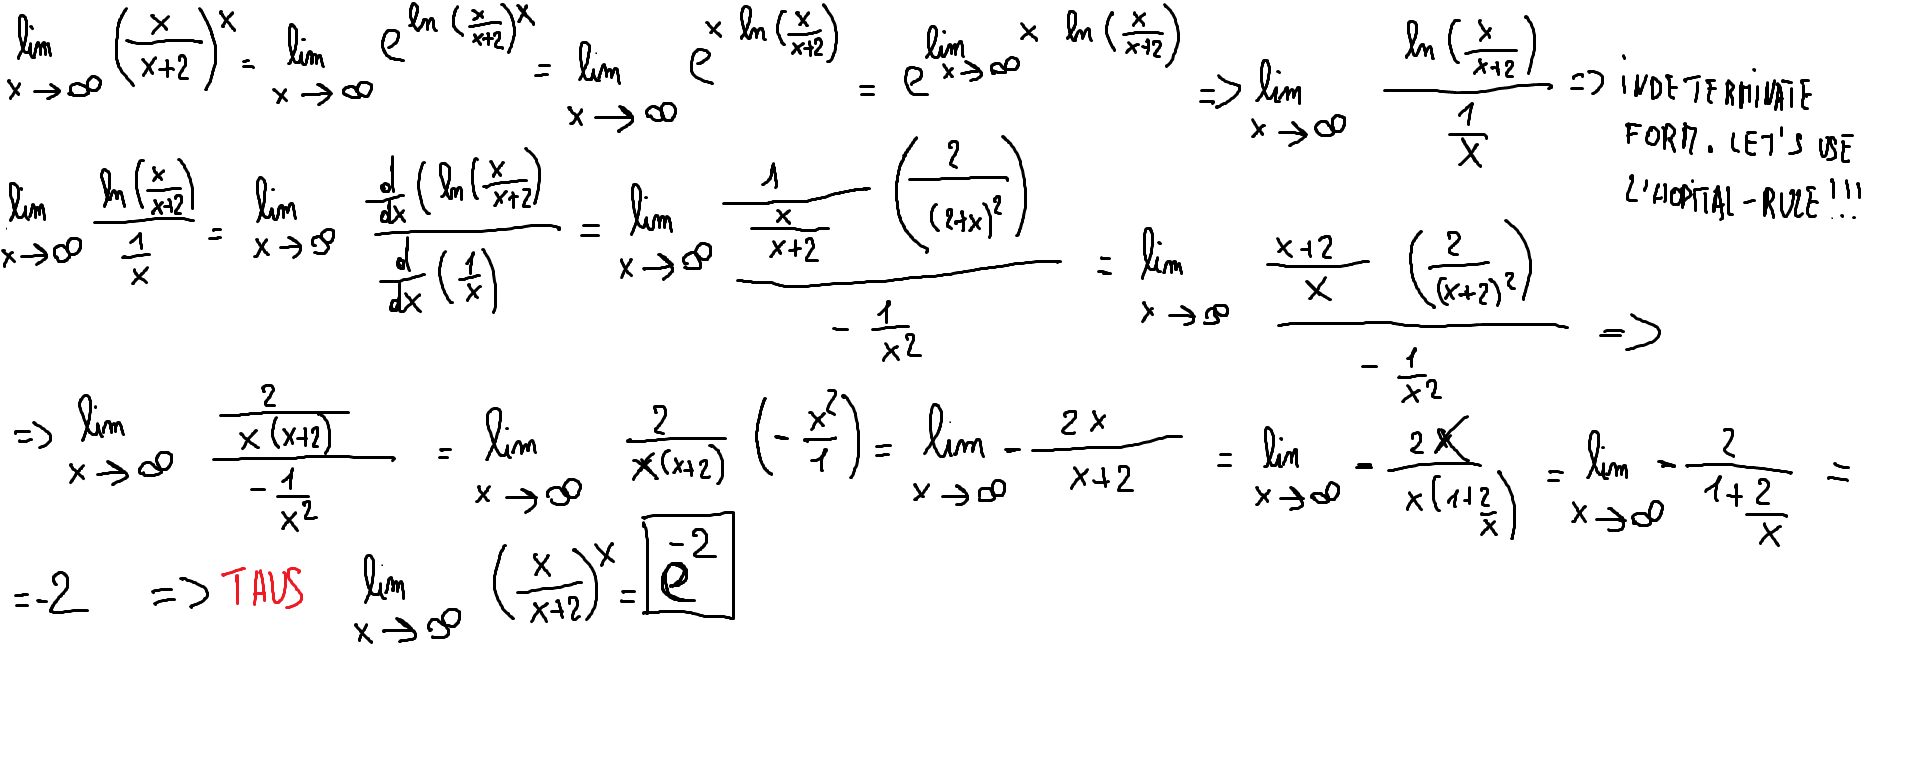 lim x→∞ (x/(x+2))^x = lim x→∞ e^(ln (x/(x+2))^x) = lim x→∞ e^(x ln (x/(x+2))) = e^(lim x→∞ x ln (x/(x+2))) => lim x→∞ ln (x/(x+2)) / (1/x) => INDETERMINATE
FORM. LET'S USE
L'HOPITAL-RULE!!!
lim x→∞ ln (x/(x+2)) / (1/x) = lim x→∞ d/dx (ln (x/(x+2)) / d/dx (1/x) = lim x→∞ 1/(x/(x+2)) (2/(2+x)^2) / -1/x^2 = lim x→∞ (x+2)/x (2/(x+2)^2) / -1/x^2 =>
=> lim x→∞ 2/(x(x+2)) / -1/x^2 = lim x→∞ 2/(x(x+2)) (-x^2/1) = lim x→∞ - 2x/(x+2) = lim x→∞ - 2x/(x(1+2/x)) = lim x→∞ - 2/(1+2/x) =
= -2 => TAUS lim x→∞ (x/(x+2))^x = e^-2